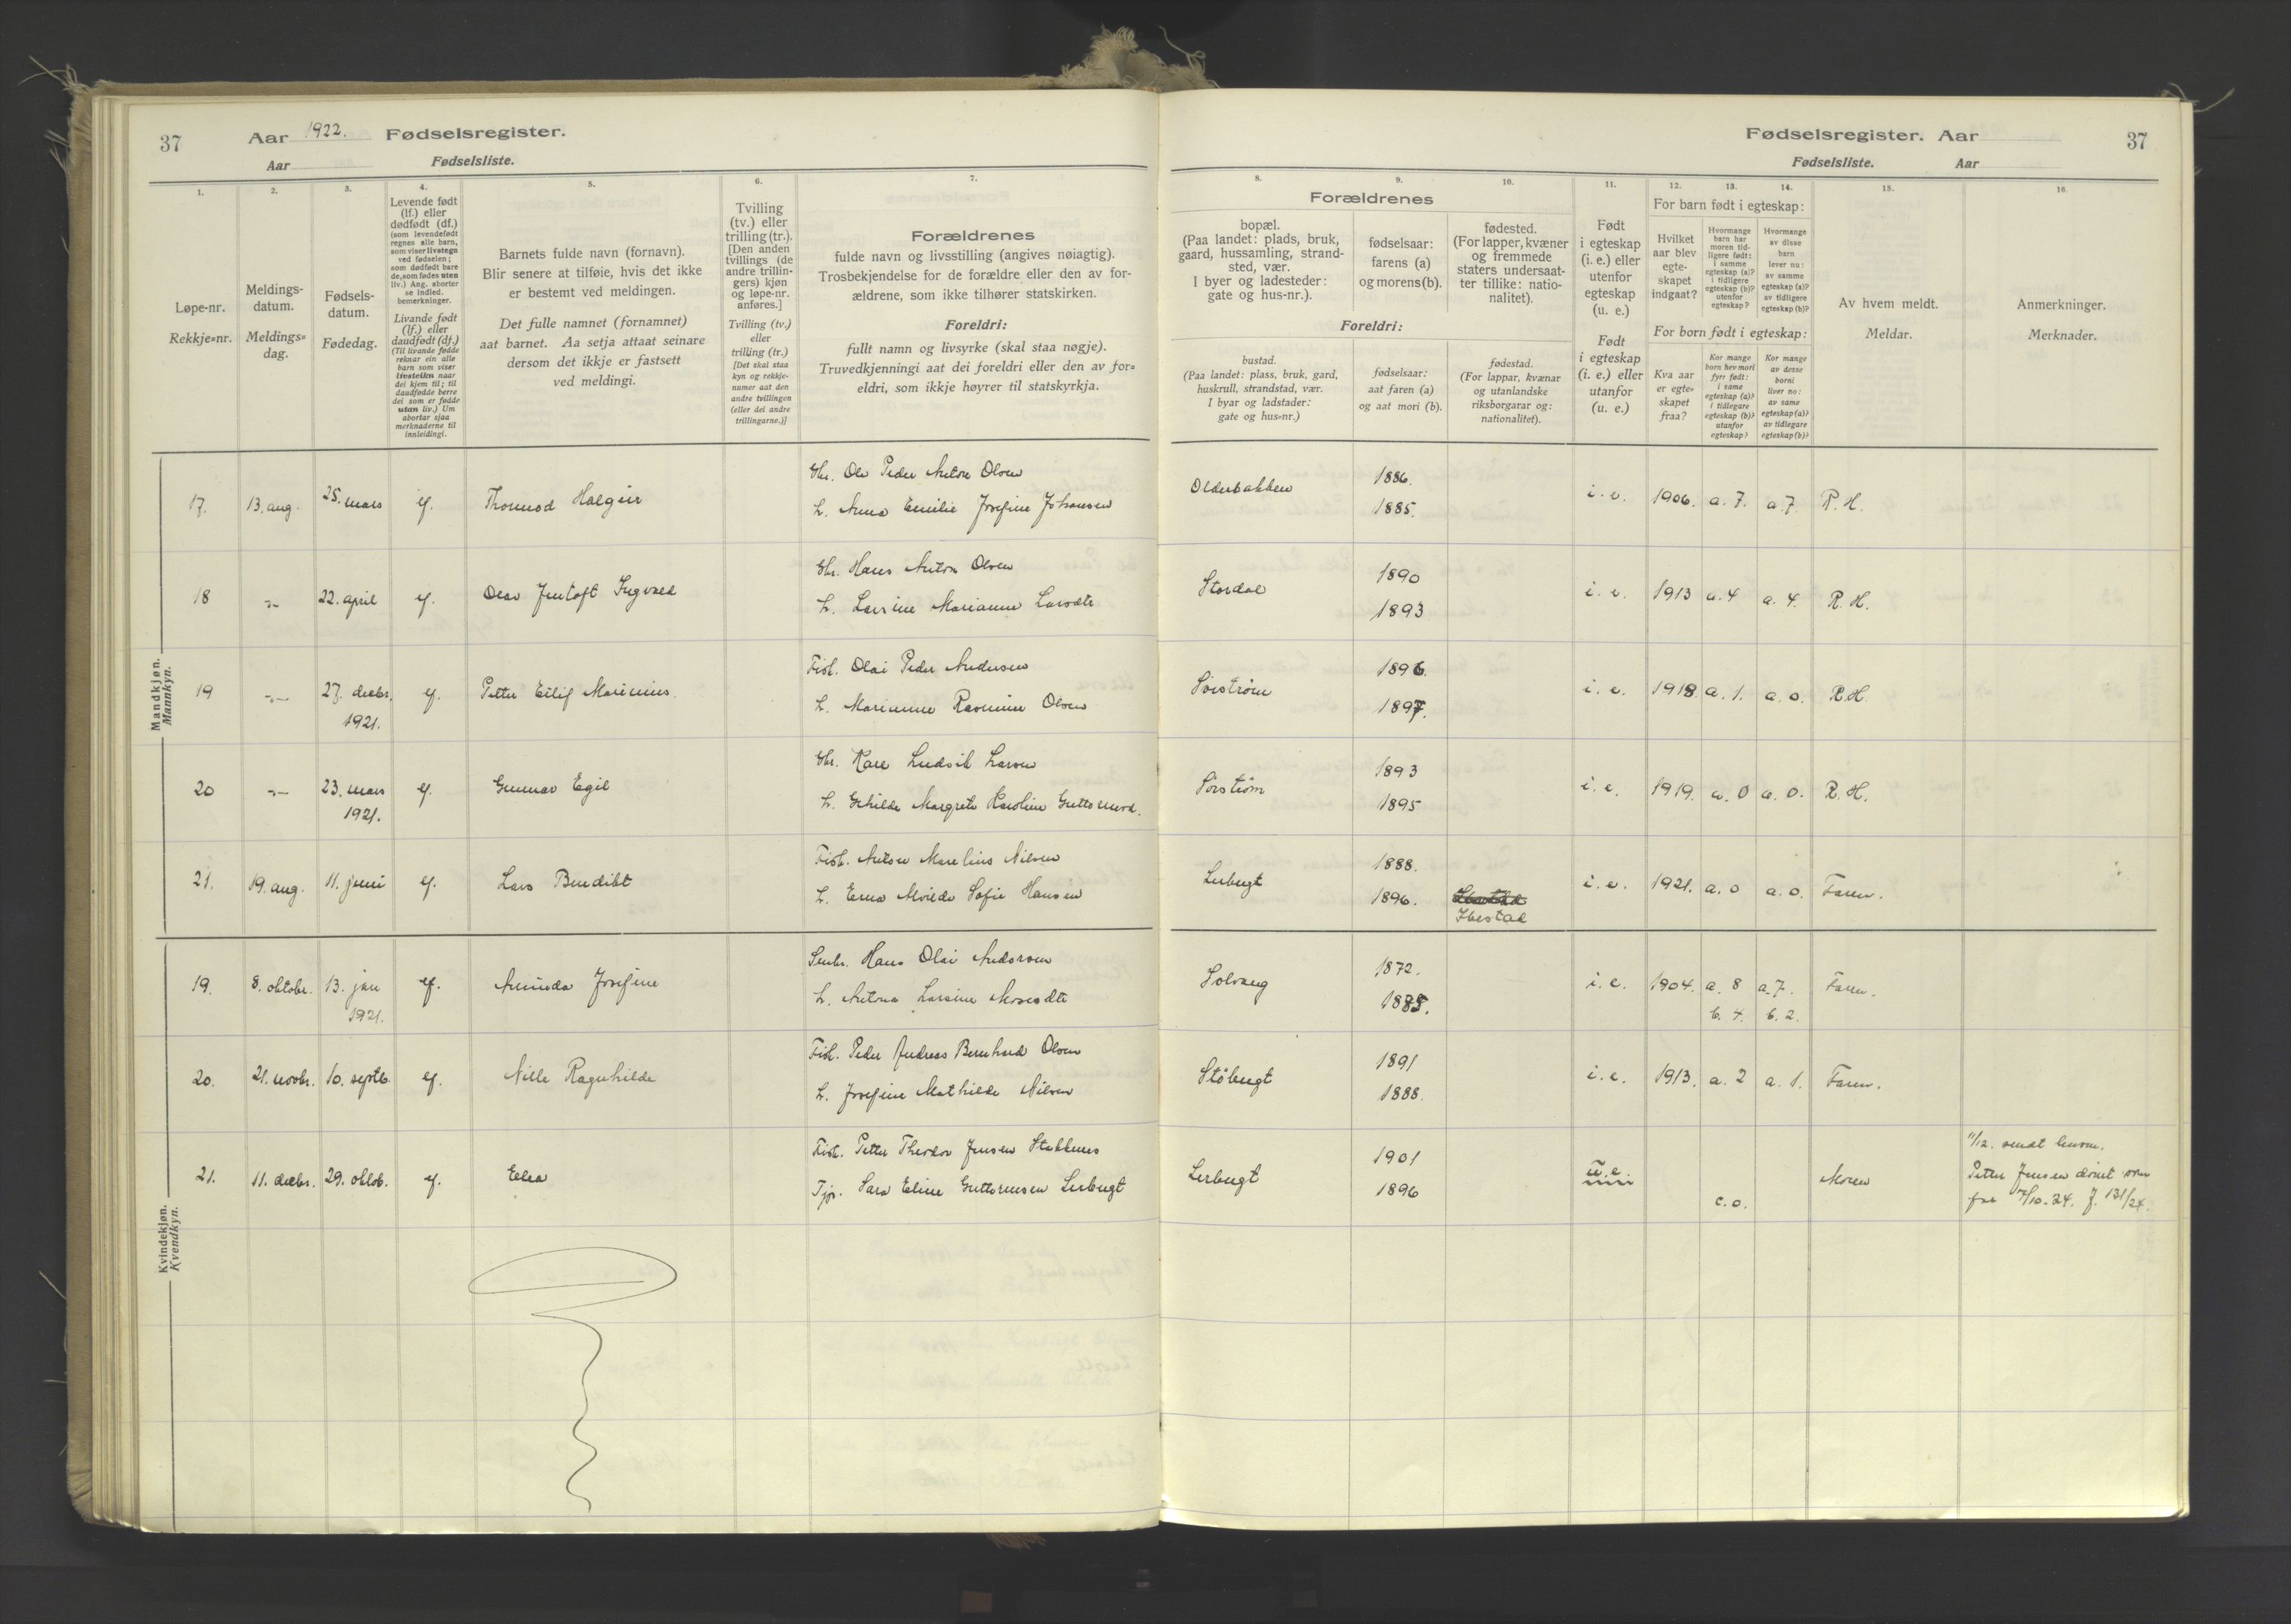 37 Aar 1922. Fødselsregister.
Aar Fødselsliste.
1. 2. 3. 4. 5. 6. 7.
Løpe-nr.
Rekkje=nr.
Meldings-
datum.
Meldings=
dag.
Fødsels-
datum.
Fødedag.
Levende født
(lf.) eller
dødfødt (df.)
(som levendefødt
regnes alle barn,
som viser livstegn
ved fødselen;
som dødfødt bare
de, som fødes uten
liv.) Ang. aborter
se indled.
bemerkninger.
Livande født
(lf.) eller
daudfødt (df.)
(Til livande fødde
reknar ein alle
barn som viser
livsteikn naar
dei kjem til; til
daudfødde berre
dei som er fødde
utan liv.) Um
abortar sjaa
merknaderne til
innleidingi.
Barnets fulde navn (fornavn).
Blir senere at tilføie, hvis det ikke
er bestemt ved meldingen.
Det fulle namnet (fornamnet)
aat barnet. Aa setja attaat seinare
dersom det ikkje er fastsett
ved meldingi.
Tvilling
(tv.) eller
trilling (tr.).
[Den anden
tvillings (de
andre trillin-
gers) kjøn
og løpe-nr.
anføres.]
Tvilling (tv.)
eller
trilling (tr.)
[Det skal staa
kyn og rekkje-
numer aat den
andre tvillingen
(eller dei andre
trillingarne.)]
Forældrenes
fulde navn og livsstilling (angives nøiagtig).
Trosbekjendelse for de forældre eller den av for-
ældrene, som ikke tilhører statskirken.
Foreldri:
fullt namn og livsyrke (skal staa nøgje).
Truvedkjenningi aat dei foreldri eller den av for=
eldri, som ikkje høyrer til statskyrkja.
Mandkjøn.
Mannkyn.
17. 13. aug. 25. mars lf. Thormod Halgeir
Gbr. Ole Peder Anton Olsen
h. Anna Emilie Josefine Johansen
18 -"- 22. april lf. Olav Jentoft Ingvald
Gbr. Hans Anton Olsen
h. Larsine Marianne Larsdtr
19 -"- 27. decbr. 1921. lf. Petter Eilif Marinius
Fisk. Olai Peder Andersen
h. Marianne Rasmine Olsen
20 -"- 23. mars 1921. lf. Gunnar Egil
Gbr. Kare Ludvik Larsen
h. Margrete Karoline
21. 19. aug. 11. juni lf. Lars Bendikt
Fisk. Nilsen
h. Erna Alvilde Sofie Hansen
Kvindekjøn.
Kvendkyn.
19. 8. oktobr. 13. jan 1921. lf. Aminda Josefine
Hans Olai Andersen
h. Antona Larsine
20. 21. novbr. 10. septb. lf. Nille Ragnhilde
Fisk. Peder Andreas Bernhard Olsen
h. Josefine Mathilde Nilsen
21. 11. decbr. 29. oktob. lf. Elea
Fisk. Petter Theodor Jensen Stubbenes
Tjp. Sara Eline Guttormsen Lerbugt
Fødselsregister. Aar 37
Fødselsliste. Aar
8. 9. 10. 11. 12. 13. 14. 15. 16.
Forældrenes
bopæl.
(Paa landet: plads, bruk,
gaard, hussamling, strand-
sted, vær.
I byer og ladesteder:
gate og hus-nr.).
fødselsaar:
farens (a)
og morens(b).
fødested.
(For lapper, kvæner
og fremmede
staters undersaat-
ter tillike: natio-
nalitet).
Foreldri:
bustad.
(Paa landet: plass, bruk, gard,
huskrull, strandstad, vær.
I byar og ladstader:
gate og hus-nr.)
fødselsaar:
aat faren (a)
og aat mori (b).
fødestad.
(For lappar, kvænar
og utanlandske
riksborgarar og:
nationalitet).
Født
i egteskap
(i. e.) eller
utenfor
egteskap
(u. e.)
Født
i egteskap
(i. e.) eller
utanfor
(u. e.)
For barn født i egteskap:
Hvilket
aar blev
egte-
skapet
indgaat?
Hvormange
barn har
moren tid-
ligere født:
i samme
egteskap (a)?
i tidligere
egteskap (b)?
utenfor
egteskap?
Hvormange
av disse
barn
lever nu:
av samme
egteskap (a)?
av tidligere
egteskap (b)?
For born født i egteskap:
Kva aar
er egte=
skapet
fraa?
Kor mange
born hev mori
fyrr født:
i same
egteskap (a)?
i tidlegare
egteskap (b)?
utanfor
egteskap?
Kor mange
av desse
borni
liver no:
av same
egteskap (a)?
av tidlegare
egteskap (b)?
Av hvem meldt.
Meldar.
Anmerkninger.
Merknader.
Olderbakken 1886. 1885. i. e. 1906. a. 7. a. 7. R. H.
Stordal 1890 1893 i. e. 1913 a. 4 a. 4. R. H.
Sörström 1896. 1897. i. e. 1918. a. 1. a. 0. R. H.
Sörström 1893 1895 i. e. 1919. a. 0 a. 0. R. H.
Lerbugt 1888. 1896. Ibestad i. e. 1921. a. 0 a. 0. Faren.
Solvang 1872. 1885. i. e. 1904. a. 8 a. 7. Faren.
b. 4. b. 2.
Störbugt 1891 1888. i. e. 1913. a. 2 a. 1. Faren.
Lerbugt 1901 1896 u. e. c. 0. Moren
11/12. sendt
Petter Jensen dömt som
far 7/10-24. J. 131/24.